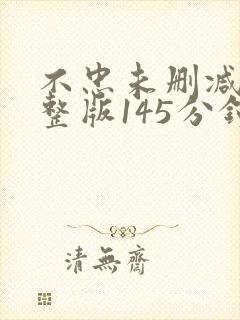 不忠未删减
整版145分钟
清無齋